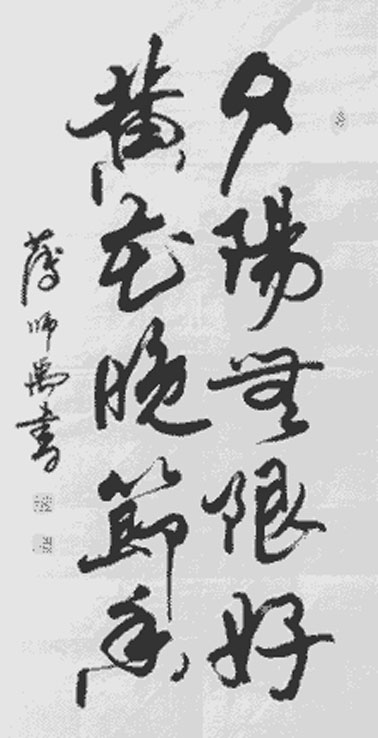 夕陽無限好
黄花晚節香
薄師禹書